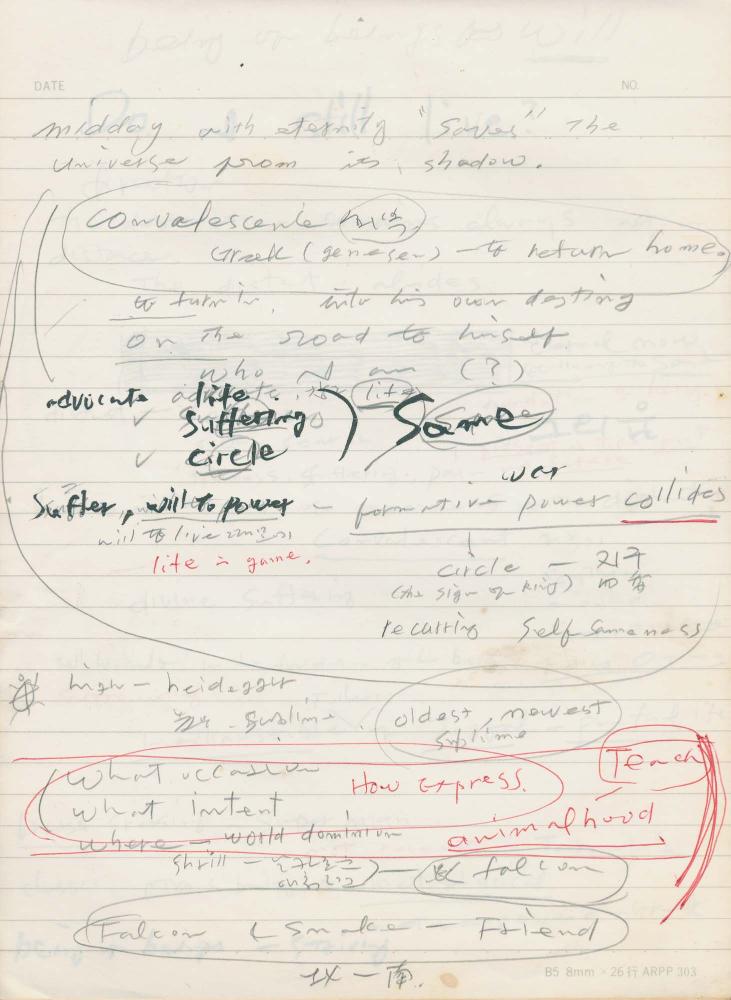 DATE
NO.
midday with eternity "saves" the
universe from its shadow.
convalescente
Greek (genesen) – to return home.
to turn in, into his own destiny
on the road to himself.
who I am (?)
advocate life
advocate life.
suffering
circle
Same
war
Suffer, will to power – formative power collides
will to live
life is game.
circle – 지구
(the sign of ring) 回帰
recurring Self Sameness
high – heidegger
sublime
oldest, newest
sublime
What occasion
How express.
Teach
what intent
where – world dominium
animalhood
shrill –
falcon
Falcon & Snake – Friend
B5 8mm × 26行 ARPP 303